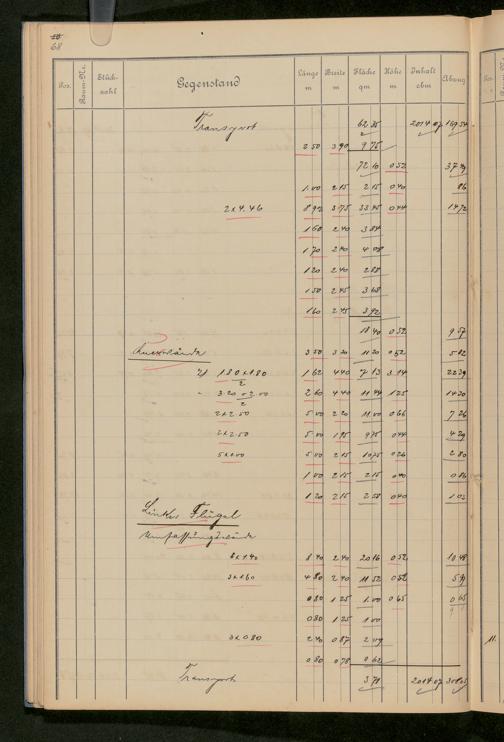 68
Pos. Raum-Nr. Stückzahl Gegenstand Länge m Breite m Fläche qm Höhe m Inhalt cbm Abzug
Transport 62 35 2014 07 169 54
2 50 3 90 9 75
72 10 0 52 37 49
1 00 2 15 2 15 0 40 86
2 x 4.46 8 92 3 75 33 45 0 44 14 72
1 60 2 40 3 84
1 70 2 40 4 08
1 20 2 40 2 88
1 50 2 45 3 68
1 60 2 45 3 92
18 40 0 52 9 57
3 50 3 20 11 20 0 52 5 82
1.80 x 1.80 1 62 4 40 7 13 3 14 22 39
2
2 60 4 40 11 44 1 25 14 30
2
2 x 2.50 5 00 2 20 11 00 0 66 7 26
2 x 2.50 5 00 1 95 9 75 0 44 4 29
5 00 2 15 10 75 0 26 2 80
1 00 2 15 2 15 0 40 0 86
1 20 2 15 2 58 0 40 1 03
Linker Flügel
Umfassungswände
6 x 1.40 8 40 2 40 20 16 0 52 10 48
3 x 1.60 4 80 2 40 11 52 0 52 5 99
0 80 1 25 1 00 0 65 0 65
0 80 1 25 1 00
3 x 0.80 2 40 0 87 2 09
0 80 0 78 0 62
Transport 3 71 2014 07